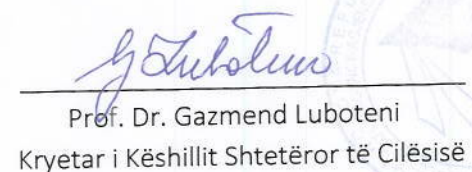 G Luboteni
Prof. Dr. Gazmend Luboteni
Kryetar i Këshillit Shtetëror të Cilësisë